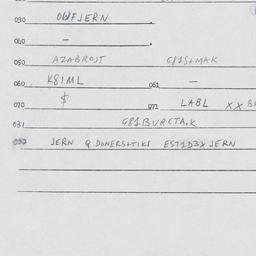 030 OWFJERN
040 -
050 AZABROST G81S+MAK
060 K8IML 061 -
070 $ 071 LABL XX B
031 G81BURCTAK
032 JERN Q DONERS+TIKI EST1D3X JERN